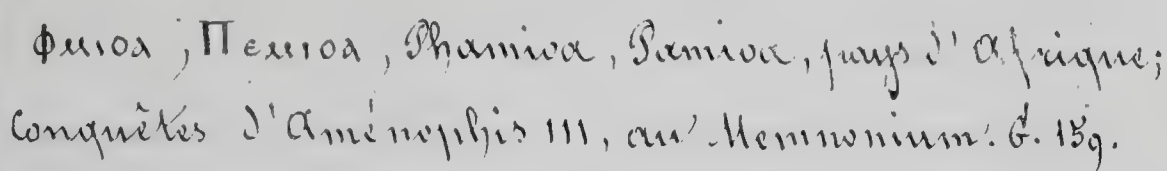 Ⲫⲙⲓⲟⲁ, Ⲡⲉⲙⲓⲟⲁ, Phamioa, Pamioa, pays d'Afrique;
Conquêtes d'Aménophis III, au Memnonium. G. 159.